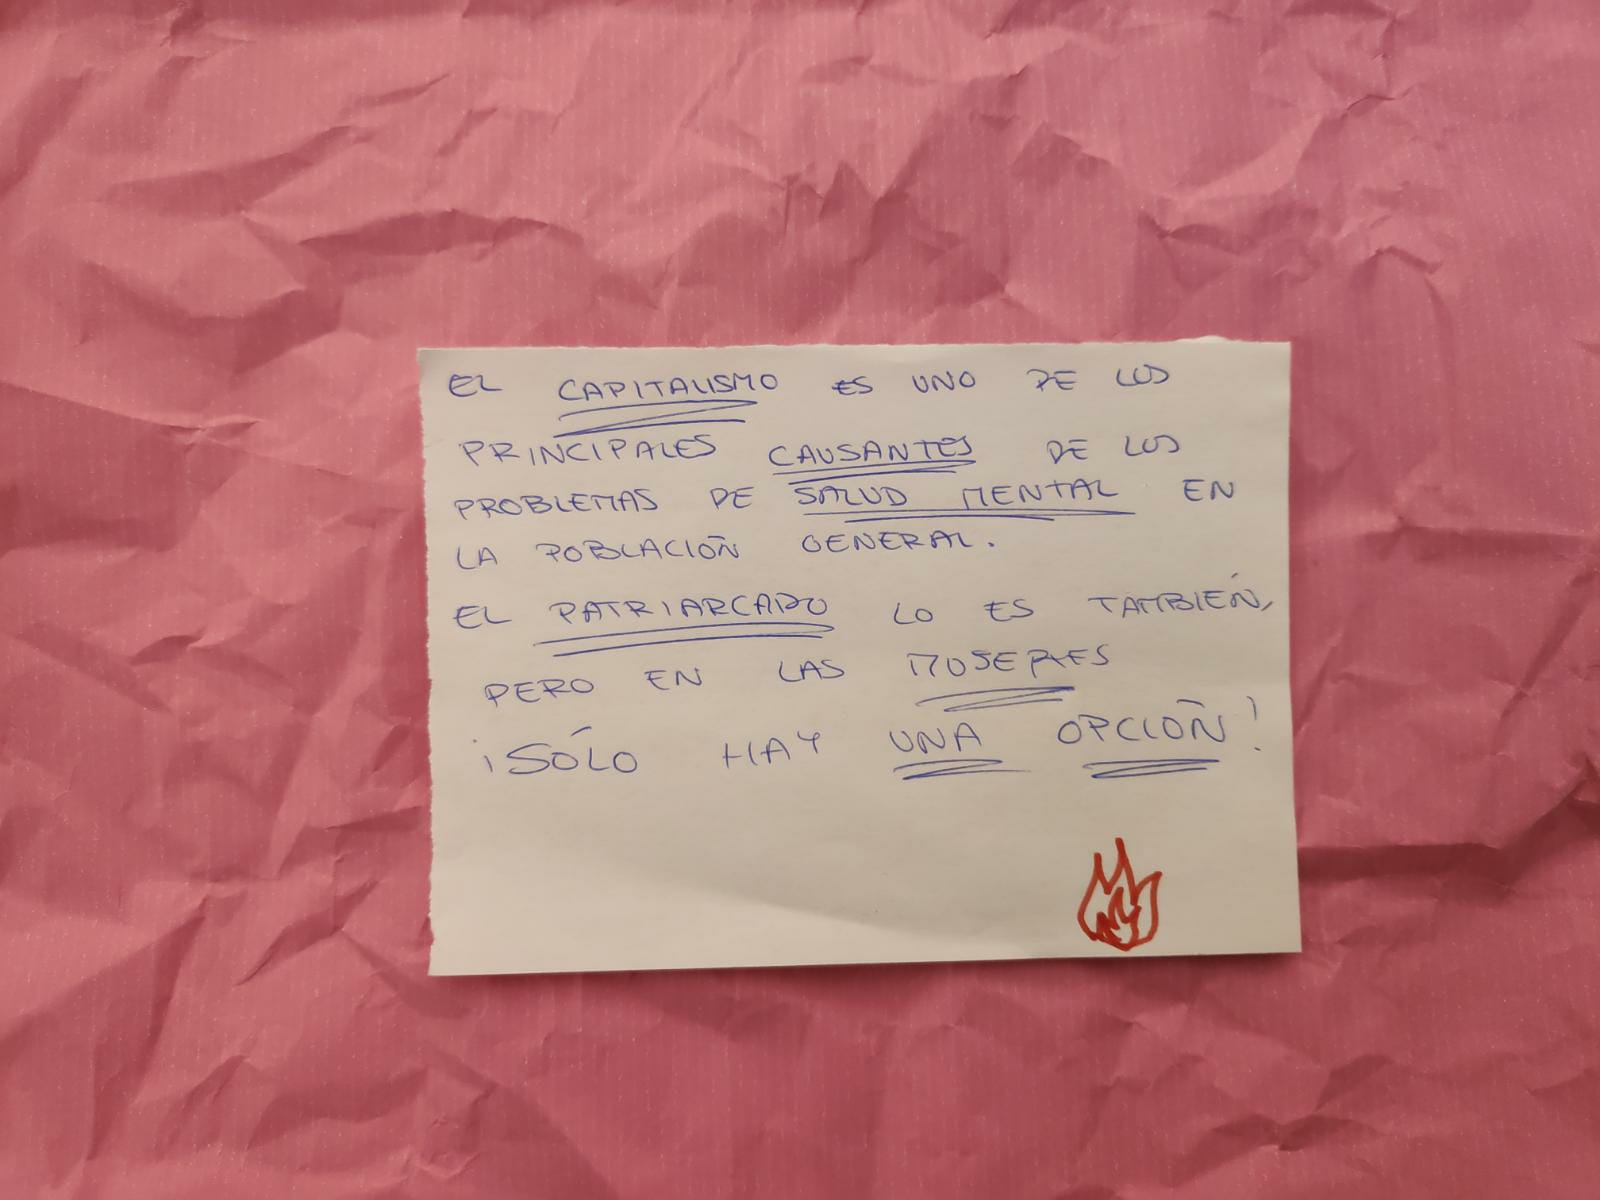 EL CAPITALISMO ES UNO DE LOS
PRINCIPALES CAUSANTES DE LOS
PROBLEMAS DE SALUD MENTAL EN
LA POBLACIÓN GENERAL.
EL PATRIARCADO LO ES TAMBIÉN,
PERO EN LAS MUJERES
¡SÓLO HAY UNA OPCIÓN!